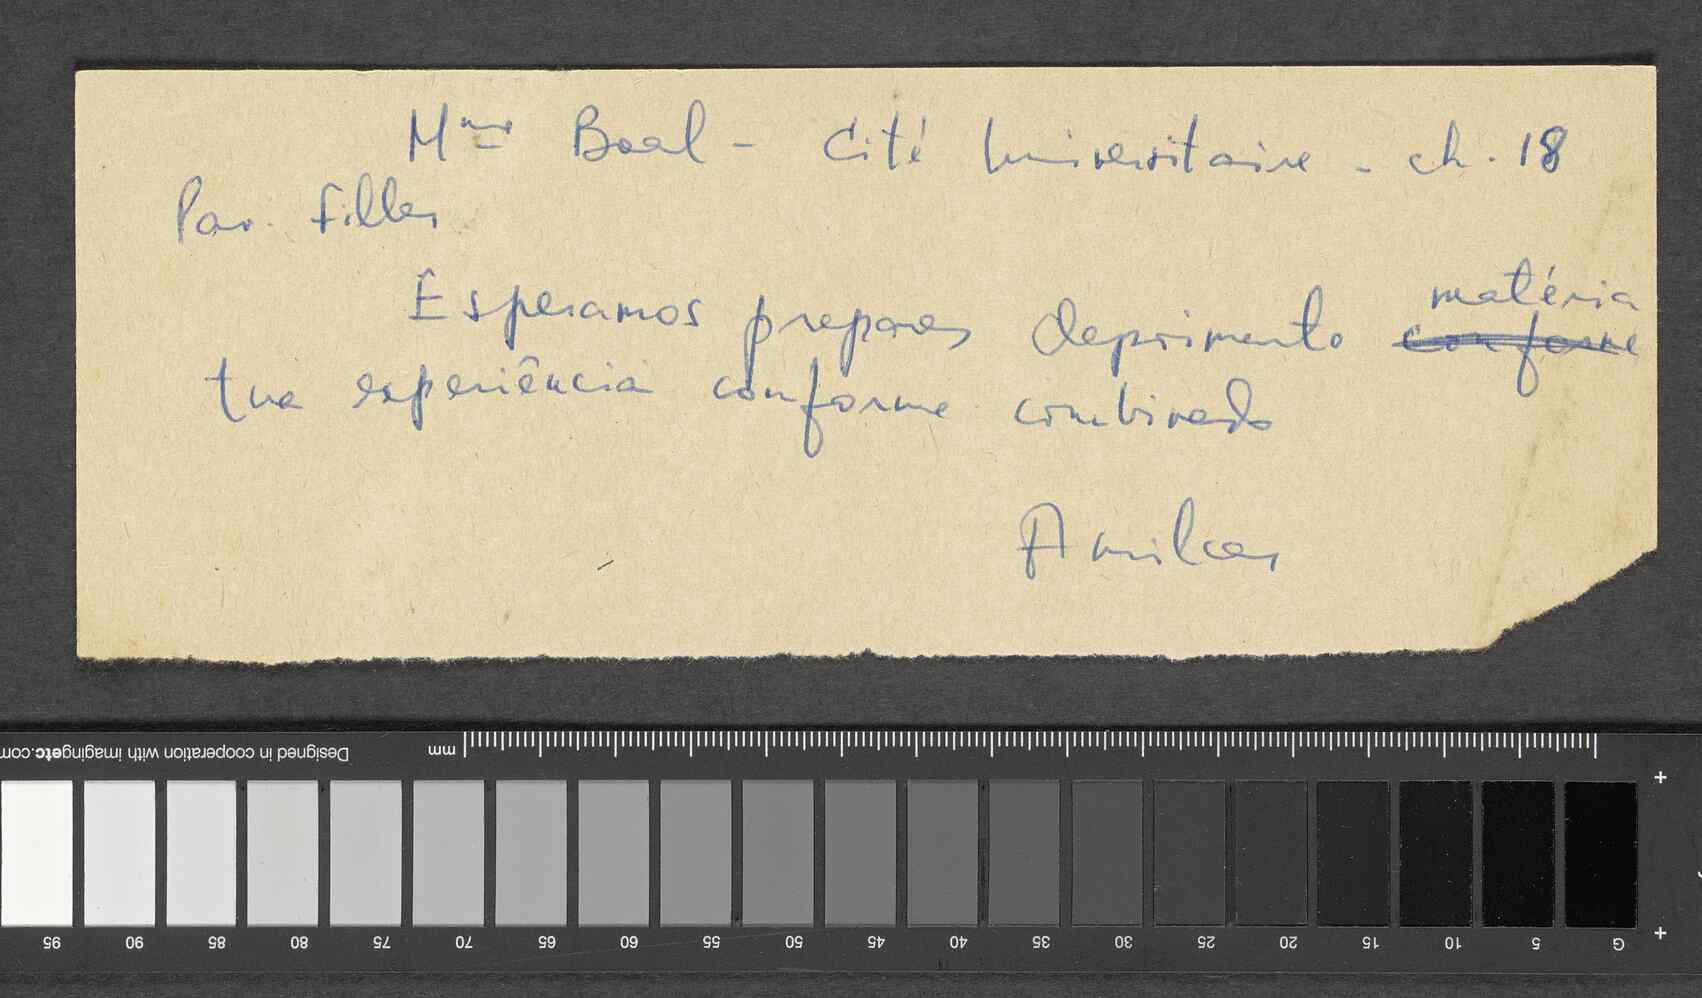 Mme Boal - Cité Universitaire - ch. 18
Pav. Filles
Esperamos prepares deprimento matéria conforme
tua experiência conforme combinado
Amilcar
mm
Designed in cooperation with imagingetc.com
95 90 85 80 75 70 65 60 55 50 45 40 35 30 25 20 15 10 5 G